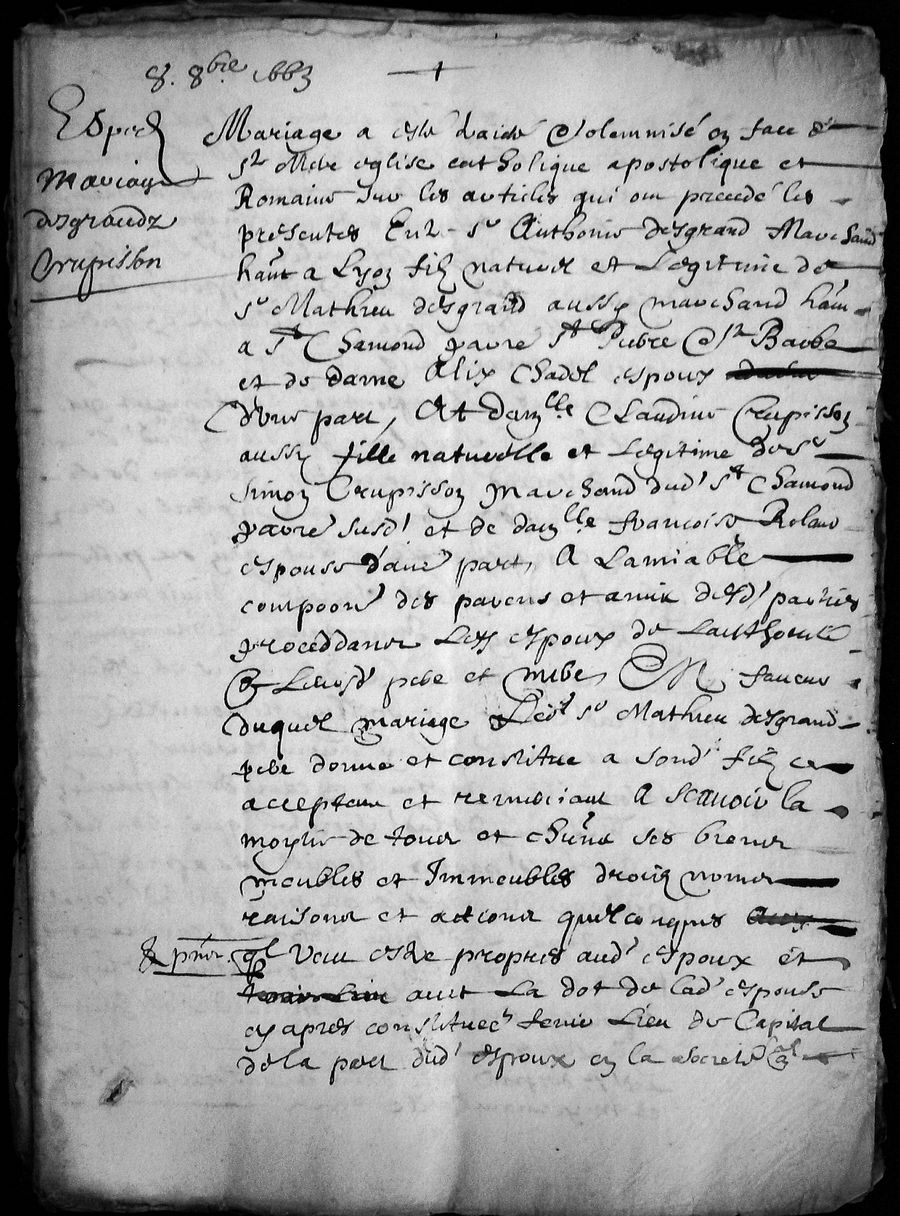 8. 8bre 1663
Exped
Mariage
desgrandz
Crupisson
Mariage a esté traicté & solemnisé en face de
ste Mere eglise catholique apostolique et
Romaine sur les articles qui ont precedé les
presentes Entre sr Anthoine desgrand Marchand
hant a Lyon filz naturel et Legitime de
sr Mathieu desgrand aussy marchand hant
a St Chamond parre St Pierre & ste Barbe
et de dame Alix Chadel espoux
d'une part, Et damlle Claudine Crupisson
aussy fille naturelle et Legitime de sr
simon Crupisson marchand dud' st Chamond
parre susd' et de damlle francoise Rolane
espouse d'aue part, A Lamiable
compoon des parens et amix desd' parties
proceddant Lesd espoux de Lauthorité
& desd pere et mere, En faveur
duquel mariage Led' sr Mathieu desgrand
pere donne et constitue a sond' filz ce
acceptant et remerciant A scauoir la
moytie de tous et chune ses biens
meubles et Immeubles droicz noms
raisons et actions quelconques
& pnt, ql veu estre propres aud' espoux et
auec La dot de lad' espouse
cy apres constituee tenir Lieu de Capital
de la part dud' espoux en la societé